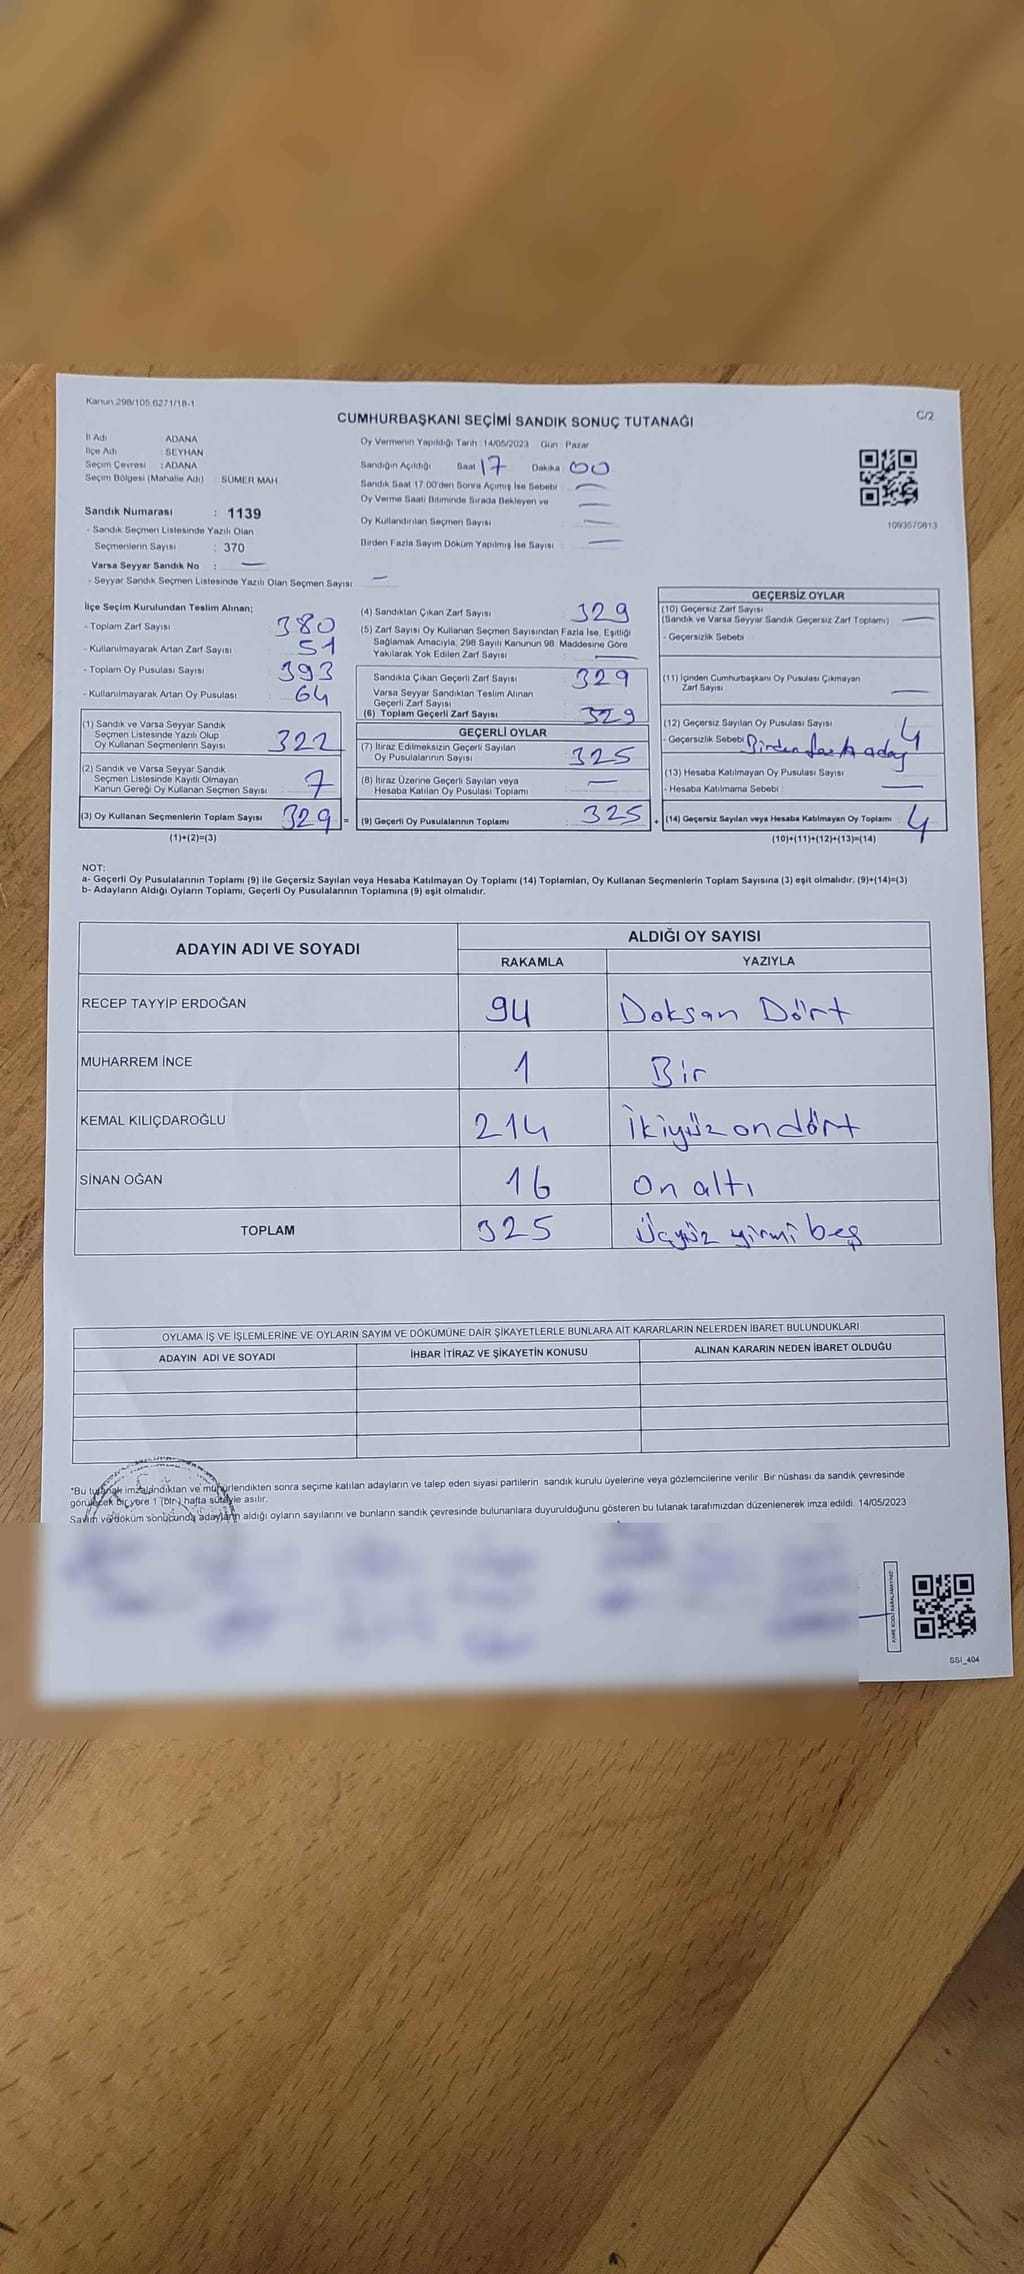 Kanun 298/105 6271/18-1
C/2
CUMHURBAŞKANI SEÇİMİ SANDIK SONUÇ TUTANAĞI
İl Adı ADANA
İlçe Adı SEYHAN
Seçim Çevresi : ADANA
Seçim Bölgesi (Mahalle Adı) SÜMER MAH
Sandık Numarası : 1139
- Sandık Seçmen Listesinde Yazılı Olan
Seçmenlerin Sayısı : 370
Varsa Seyyar Sandık No : —
- Seyyar Sandık Seçmen Listesinde Yazılı Olan Seçmen Sayısı —
Oy Vermenin Yapıldığı Tarih : 14/05/2023 Gün : Pazar
Sandığın Açıldığı Saat 17 Dakika 00
Sandık Saat 17.00'den Sonra Açımış İse Sebebi —
Oy Verme Saati Bitiminde Sırada Bekleyen ve —
Oy Kullandırılan Seçmen Sayısı —
Birden Fazla Sayım Döküm Yapılmış İse Sayısı : —
1093670813
İlçe Seçim Kurulundan Teslim Alınan;
- Toplam Zarf Sayısı : 380
- Kullanılmayarak Artan Zarf Sayısı : 51
- Toplam Oy Pusulası Sayısı : 393
- Kullanılmayarak Artan Oy Pusulası : 64
(1) Sandık ve Varsa Seyyar Sandık
Seçmen Listesinde Yazılı Olup
Oy Kullanan Seçmenlerin Sayısı : 322
(2) Sandık ve Varsa Seyyar Sandık
Seçmen Listesinde Kayıtlı Olmayan
Kanun Gereği Oy Kullanan Seçmen Sayısı : 7
(3) Oy Kullanan Seçmenlerin Toplam Sayısı : 329 =
(1)+(2)=(3)
(4) Sandıktan Çıkan Zarf Sayısı 329
(5) Zarf Sayısı Oy Kullanan Seçmen Sayısından Fazla İse, Eşitliği
Sağlamak Amacıyla, 298 Sayılı Kanunun 98. Maddesine Göre
Yakılarak Yok Edilen Zarf Sayısı —
Sandıkta Çıkan Geçerli Zarf Sayısı 329
Varsa Seyyar Sandıktan Teslim Alınan
Geçerli Zarf Sayısı
(6) Toplam Geçerli Zarf Sayısı 329
GEÇERLİ OYLAR
(7) İtiraz Edilmeksizin Geçerli Sayılan
Oy Pusulalarının Sayısı 325
(8) İtiraz Üzerine Geçerli Sayılan veya
Hesaba Katılan Oy Pusulası Toplamı —
(9) Geçerli Oy Pusulalarının Toplamı 325 +
GEÇERSİZ OYLAR
(10) Geçersiz Zarf Sayısı
(Sandık ve Varsa Seyyar Sandık Geçersiz Zarf Toplamı) —
- Geçersizlik Sebebi
(11) İçinden Cumhurbaşkanı Oy Pusulası Çıkmayan
Zarf Sayısı —
(12) Geçersiz Sayılan Oy Pusulası Sayısı 4
- Geçersizlik Sebebi Birden fazla aday
(13) Hesaba Katılmayan Oy Pusulası Sayısı
- Hesaba Katılmama Sebebi : —
(14) Geçersiz Sayılan veya Hesaba Katılmayan Oy Toplamı : 4
(10)+(11)+(12)+(13)=(14)
NOT:
a- Geçerli Oy Pusulalarının Toplamı (9) ile Geçersiz Sayılan veya Hesaba Katılmayan Oy Toplamı (14) Toplamları, Oy Kullanan Seçmenlerin Toplam Sayısına (3) eşit olmalıdır. (9)+(14)=(3)
b- Adayların Aldığı Oyların Toplamı, Geçerli Oy Pusulalarının Toplamına (9) eşit olmalıdır.
ADAYIN ADI VE SOYADI ALDIĞI OY SAYISI
RAKAMLA YAZIYLA
RECEP TAYYİP ERDOĞAN 94 Doksan Dört
MUHARREM İNCE 1 Bir
KEMAL KILIÇDAROĞLU 214 İkiyüz on dört
SİNAN OĞAN 16 On altı
TOPLAM 325 Üçyüz yirmi beş
OYLAMA İŞ VE İŞLEMLERİNE VE OYLARIN SAYIM VE DÖKÜMÜNE DAİR ŞİKAYETLERLE BUNLARA AİT KARARLARIN NELERDEN İBARET BULUNDUKLARI
ADAYIN ADI VE SOYADI İHBAR İTİRAZ VE ŞİKAYETİN KONUSU ALINAN KARARIN NEDEN İBARET OLDUĞU
*Bu tutanak imzalandıktan ve mühürlendikten sonra seçime katılan adayların ve talep eden siyasi partilerin sandık kurulu üyelerine veya gözlemcilerine verilir. Bir nüshası da sandık çevresinde
görülecek bir yere 1 (bir) hafta süreyle asılır.
Sayım ve döküm sonucunda adayların aldığı oyların sayılarını ve bunların sandık çevresinde bulunanlara duyurulduğunu gösteren bu tutanak tarafımızdan düzenlenerek imza edildi. 14/05/2023
KARE KODU KARALAMAYINIZ!
SSI_404